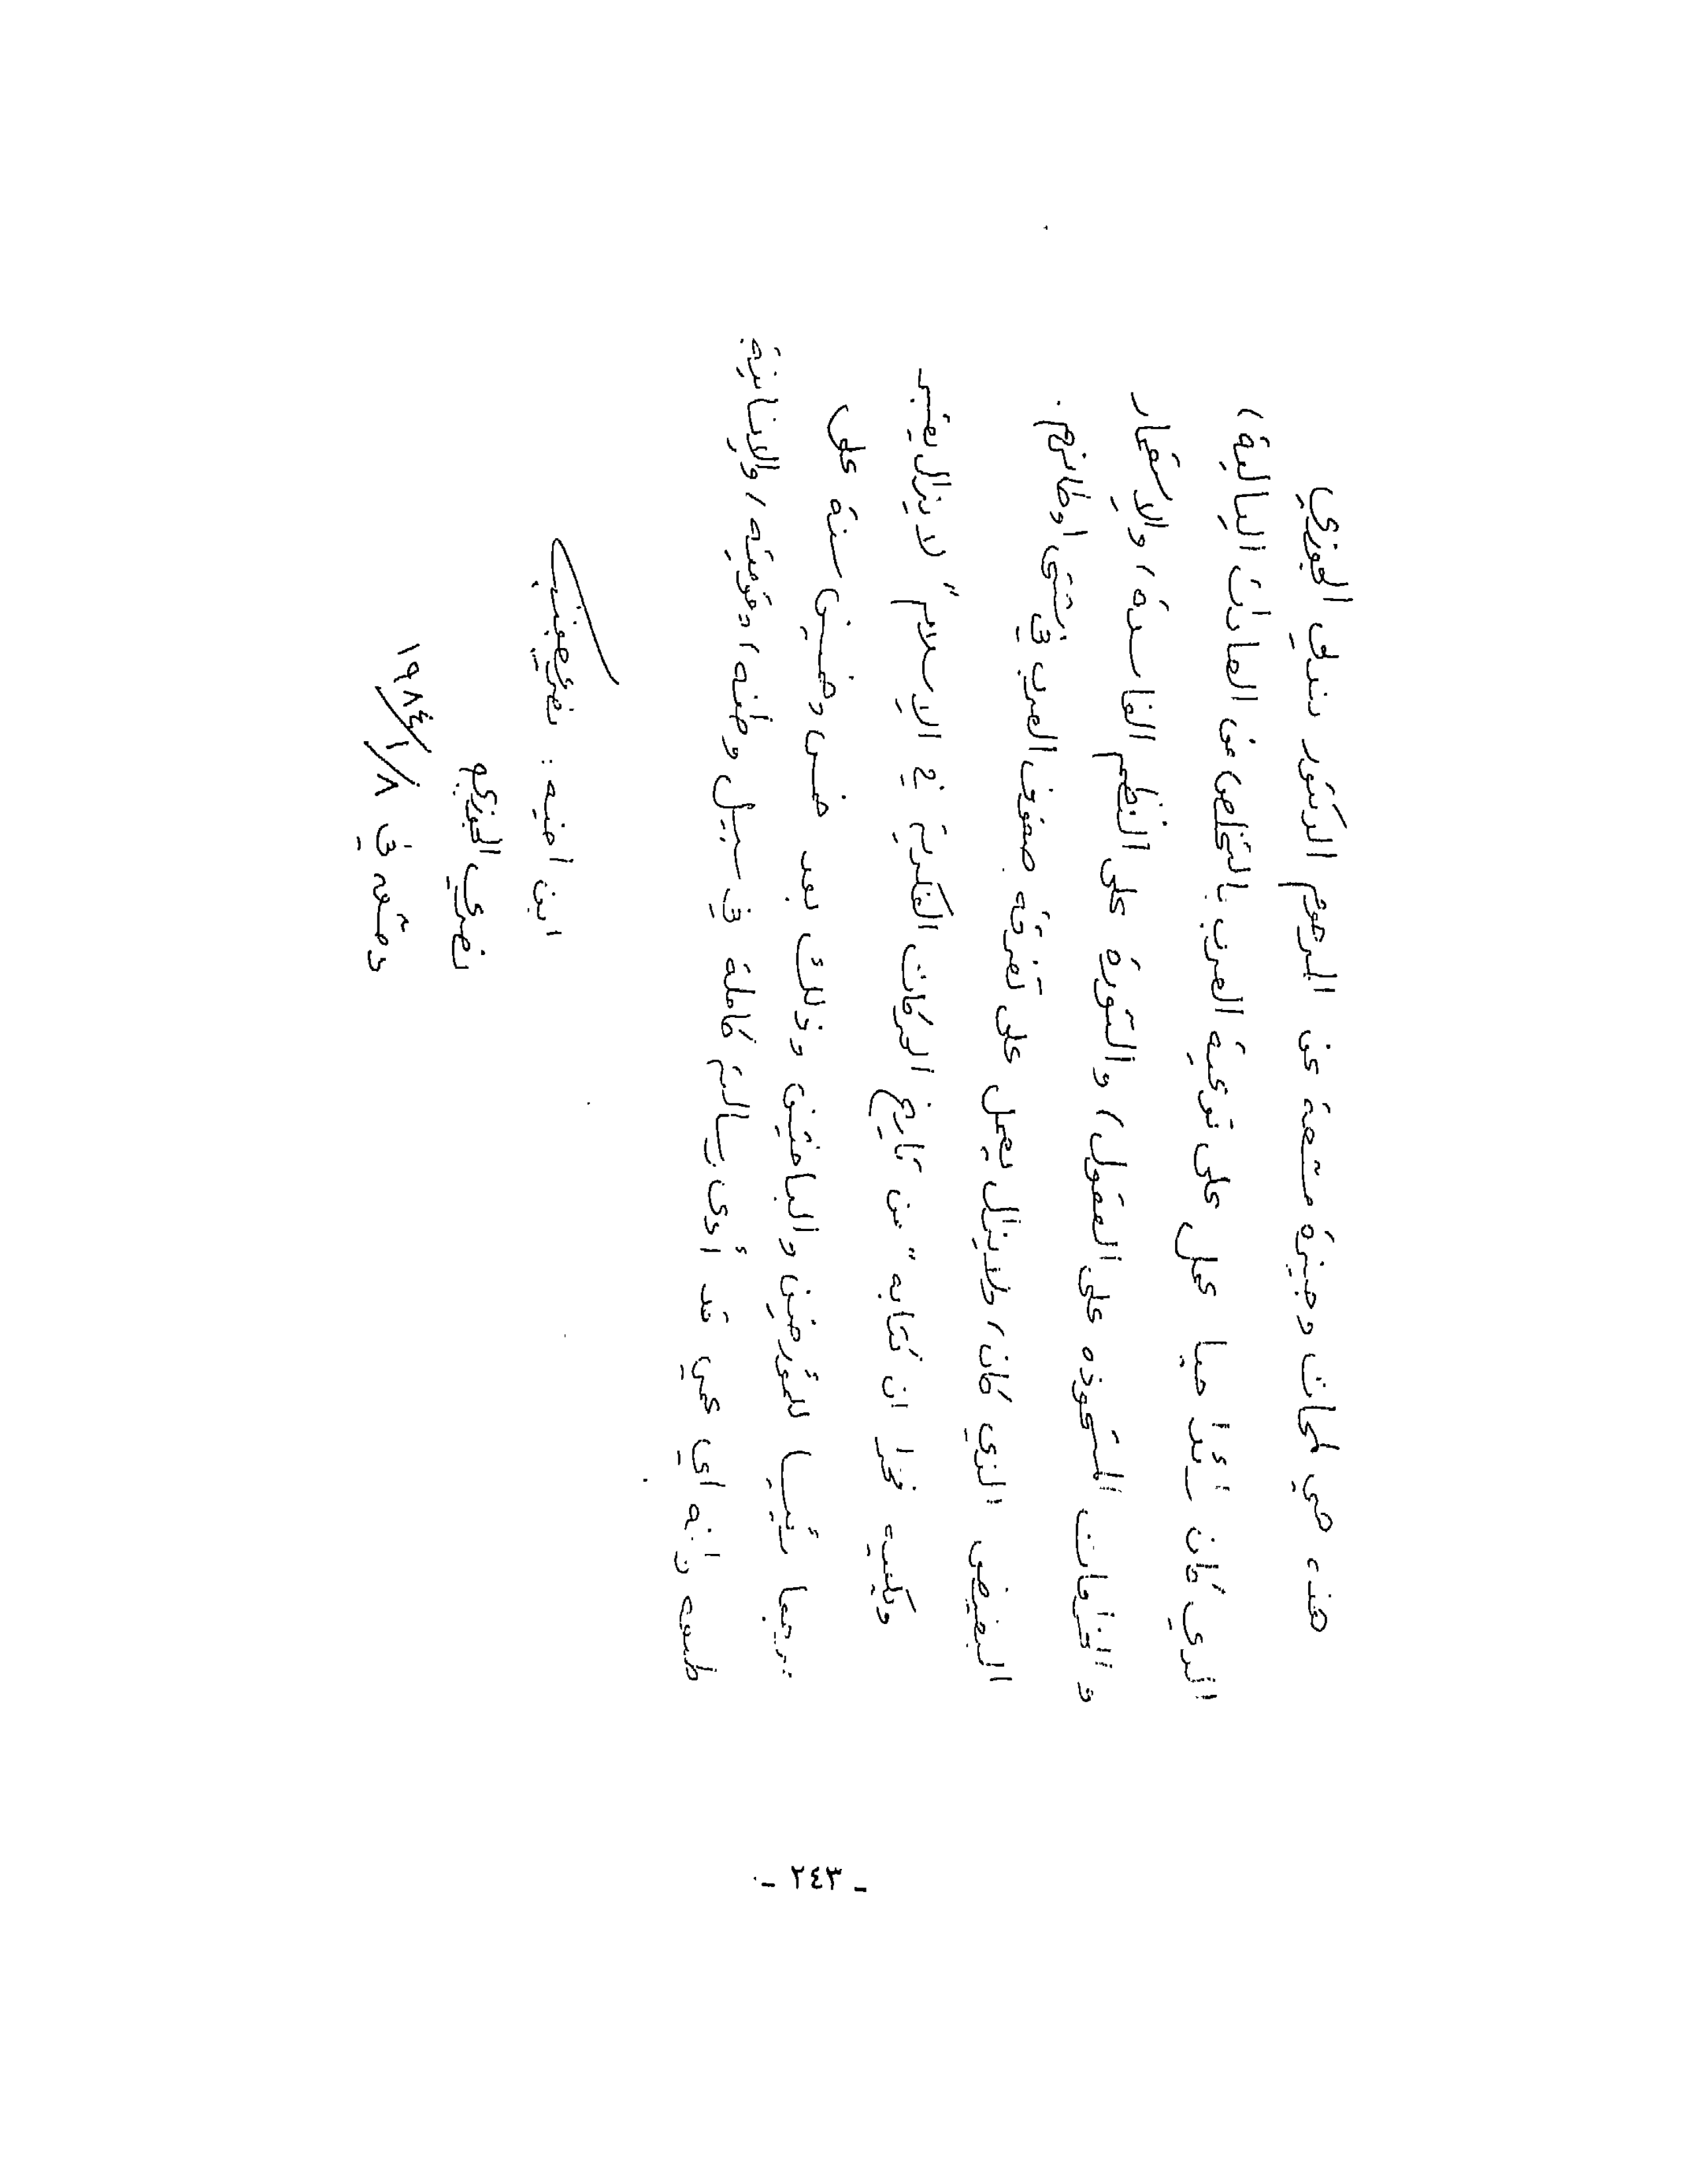 هذه هي لمحات وجيزة مشعة عن المرحوم الدكتور بندلي الجوزي
الذي كان رائدا حيا عمل على توعية العرب بالتخلص من العادات البالية،
و الخزافات المشعوذه على العقول، والثورة على النظم الفاسدة، والاستعمار
البغيض الذي كان، ولا يزال يعمل على تفرقة صفوف العرب في شتى اوطانهم.
ويكفيه فخرا ان كتابه "من تاريخ الحركات الفكرية في الاسلام" لا يزال يعتبر
مرجعا رئيسيا للمؤرخين والباحثين وذلك بعد خمس وخمسين سنة على
طبعه وانه اي عمي قد أدى رسالة كاملة في سبيل وطنه، وقوميته، والإنسانية
ابن اخيه: نصري
نصري الجوزي
دمشق في ٨/١/١٩٨٤
- ٣٤٢ -